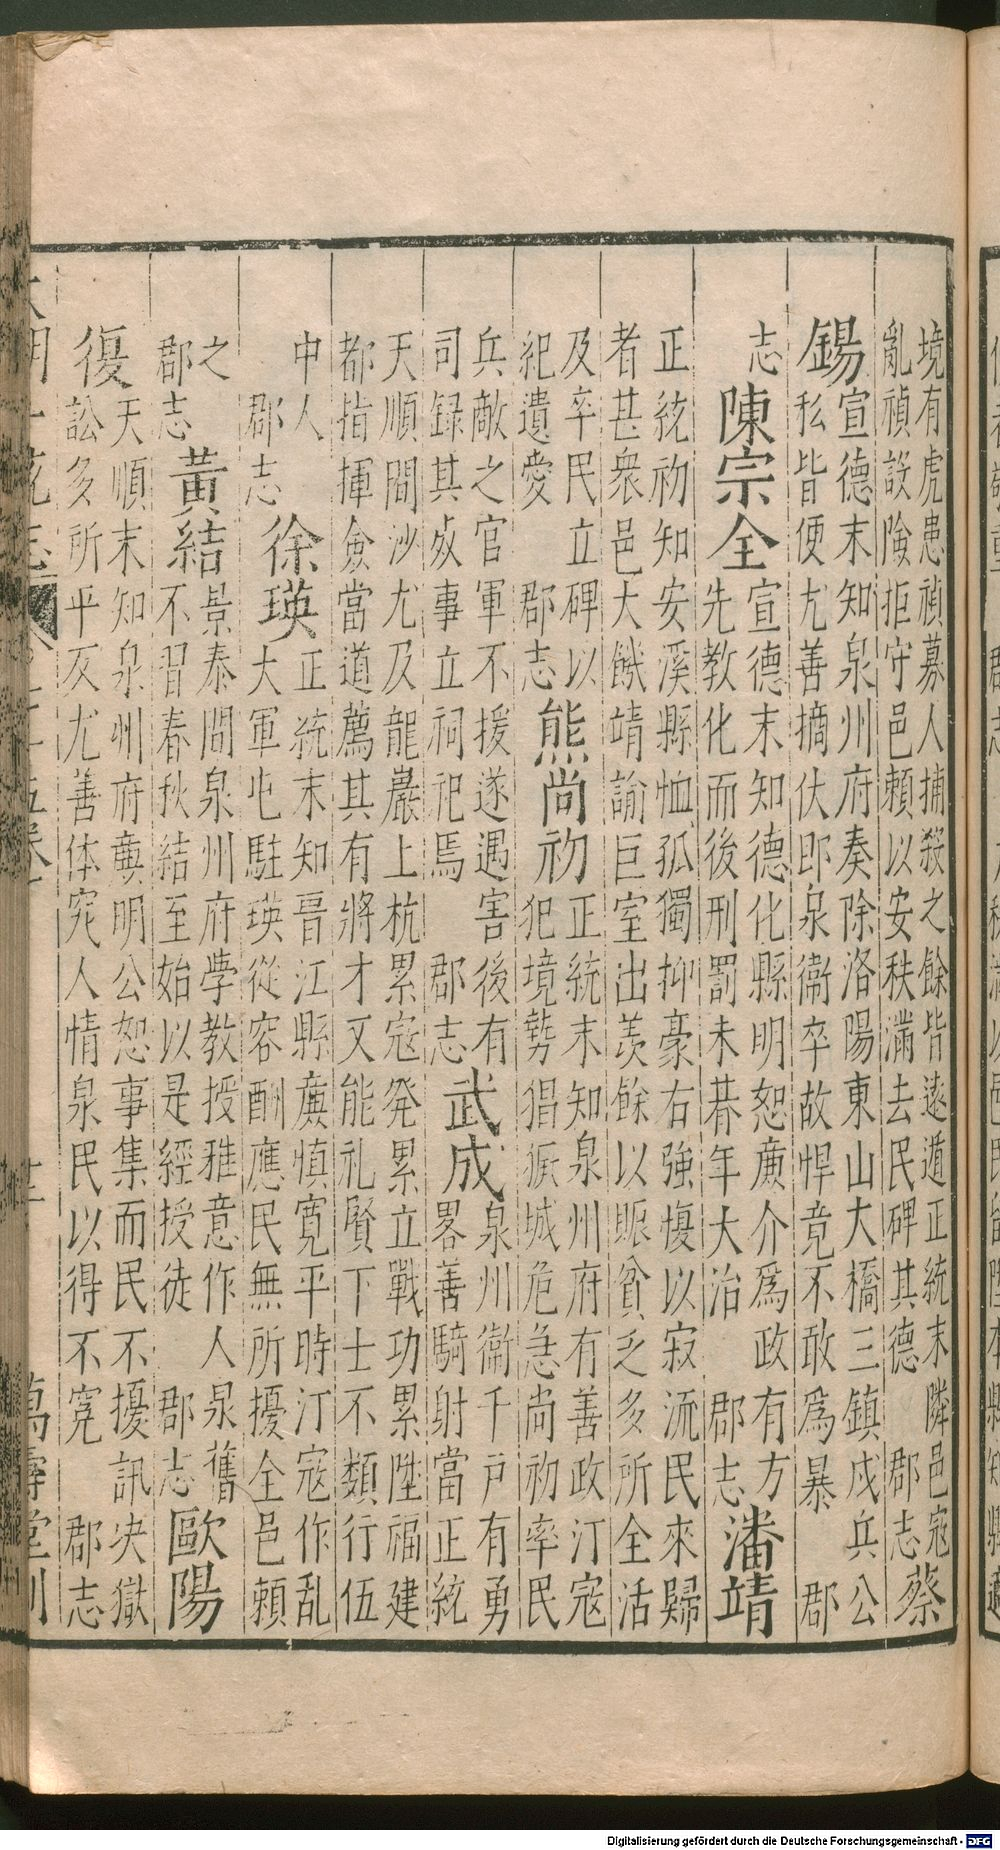 境有虎患禎募人捕殺之餘皆遠遁正統末隣邑寇
亂禎設險拒守邑賴以安秩滿去民碑其德 郡志
蔡
錫
宣德末知泉州府奏除洛陽東山大橋三鎮戍兵公
私皆便尤善摘伏即泉衞卒故悍竟不敢爲暴 郡
志
陳宗全
宣德末知德化縣明恕亷介爲政有方
先教化而後刑罰未朞年大治 郡志
潘靖
正統初知安溪縣恤孤獨抑豪右強擾以寂流民來歸
者甚衆邑大饑靖諭巨室出羨餘以賑貧乏多所全活
及卒民立碑以
祀遺愛 郡志
熊尚初
正統末知泉州府有善政汀寇
犯境勢猖獗城危急尚初率民
兵敵之官軍不援遂遇害後有
司録其㱔事立祠祀焉 郡志
武成
泉州衞千戸有勇
畧善騎射當正統
天順間沙尤及龍嚴上杭累寇発累立戰功累陞福建
都指揮僉當道薦其有將才又能礼賢下士不類行伍
中人
郡志
徐瑛
正統末知晋江縣亷慎寛平時汀寇作乱
大軍屯駐瑛從容酬應民無所擾全邑頼
之
郡志
黃結
景泰間泉州府學教授雅意作人泉舊
不習春秋結至始以是經授徒 郡志
歐陽
復
天順末知泉州府亷明公恕事集而民不擾訊决獄
訟多所平反尤善体䆒人情泉民以得不寃 郡志
萬壽堂刊
Digitalisierung gefördert durch die Deutsche Forschungsgemeinschaft - DFG